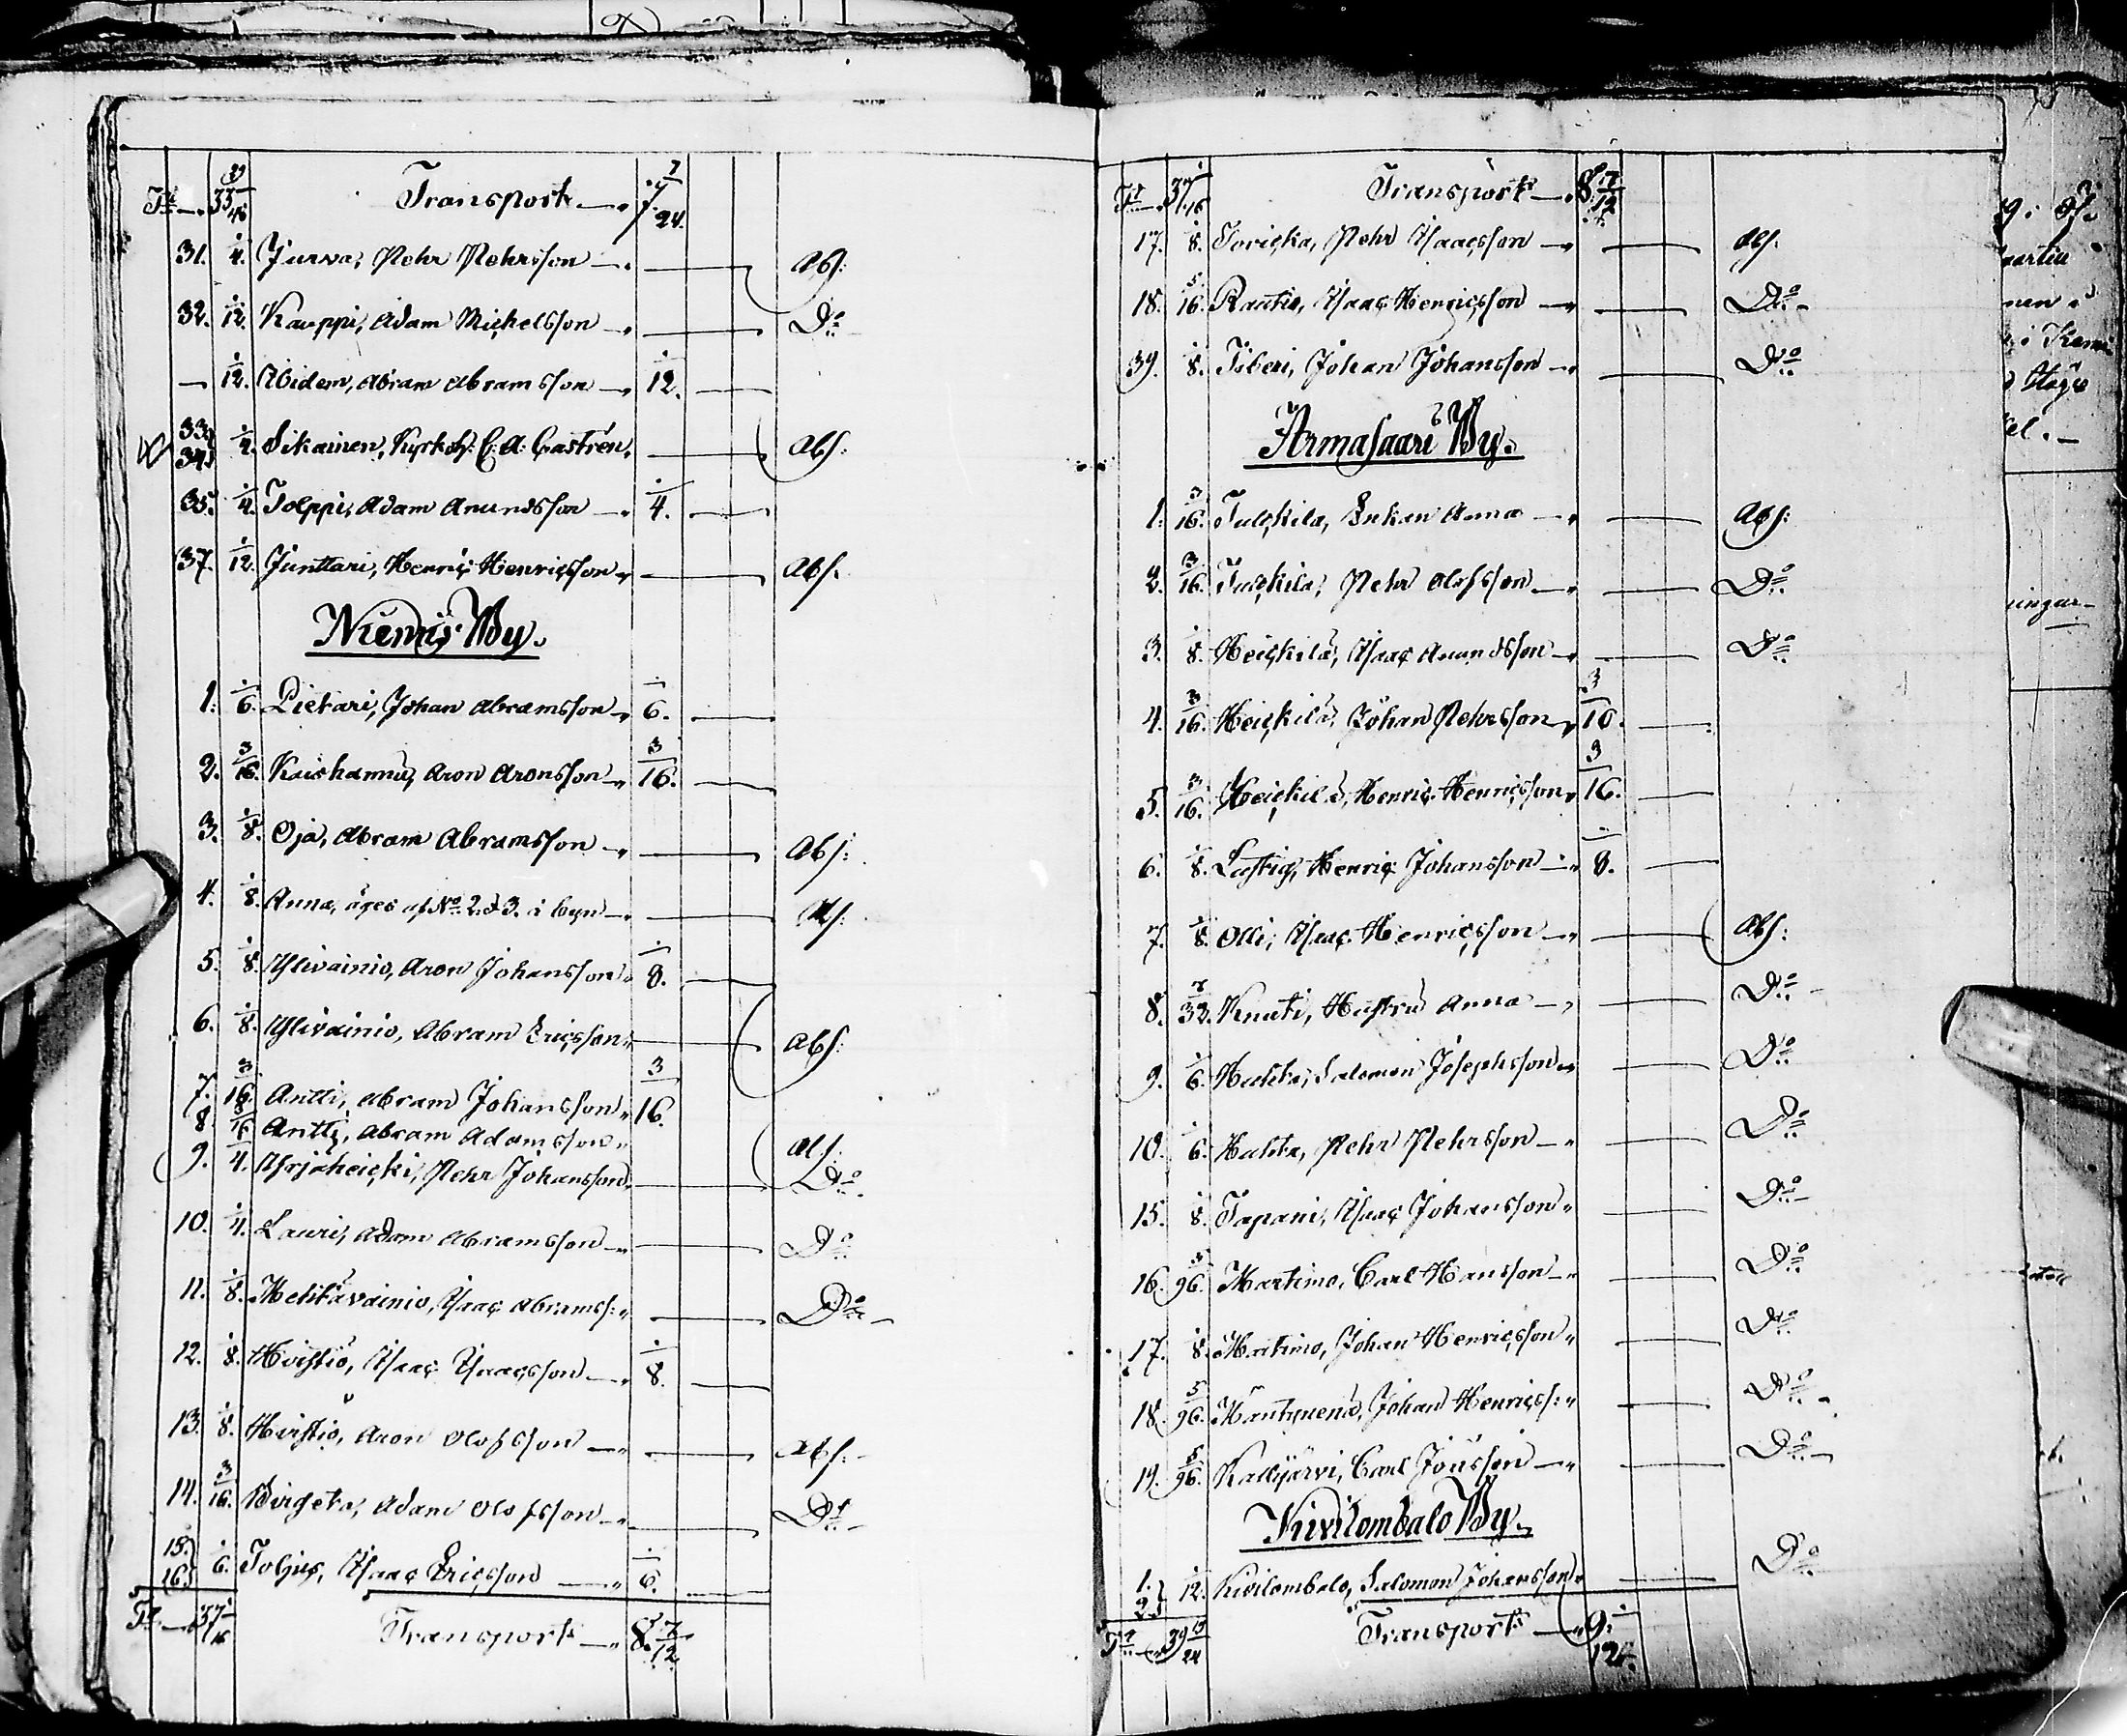 Tt — 33 39/48 Transport — " 7 7/24.
31. 1/4. Jurva, Pehr Pehrsson — " — Abs:
32. 1/12. Kauppi, Adam Michelsson — " — Do
— 1/12. Ibidem, Abram Abramsson — " 1/12. —
33. 34. 1/4. Sikainen, Kyrkoh: E: A: Castrén, — Abs:
35. 1/4. Tolppi, Adam Anundsson — " 1/4. —
37. 1/12. Junttari, Henric Henricsson " — Abs.
Niemis By.
1. 1/6. Pietari, Johan Abramsson — " 1/6. —
2. 3/16. Kaishannu, Aron Aronsson — " 3/16. —
3. 1/8. Oja, Abram Abramsson — " — Abs:
4. 1/8. Anna, äges af No 2. & 3. i byn — " — Abs:
5. 1/8. Ylivainio, Aron Johansson " 1/8. —
6. 1/8. Ylivainio, Abram Ericsson " — Abs:
7. 3/16. Antti, Abram Johansson " 3/16.
8. 3/16 Antti, Abram Adamsson " Abs:
9. 1/4. Yrjäheicki, Pehr Johansson " — Do
10. 1/4. Lauri, Adam Abramsson — " — Do
11. 1/8. Mehtävainio, Isaac Abramss: " — Do —
12. 1/8. Hvistiö, Isaac Isaacsson — " 1/8. —
13. 1/8. Hvistiö, Aron Olofsson — " — Abs: -
14. 3/16. Birgeta, Adam Olofsson — " — Do -
15. 16. 1/6. Toljus, Isaac Ericsson — " 1/6. —
Tt — 37 1/16 Transport — " 8. 7/12.
Tt — 37 1/16 Transport — " 8 7/12
17. 1/8. Tovicka, Pehr Isaacsson — " — Abs.
18. 5/16. Rautio, Isaac Henricsson — " — Do -
39. 1/8. Toberi, Johan Johansson — " — Do
Armasaari By.
1. 3/16. Tulckila, Enkan Anna — " — Abs:
2. 3/16. Tulckila, Pehr Olofsson — " — Do
3. 1/8. Heickilä, Isaac Anundsson — " — Do
4. 3/16. Heickilä, Johan Pehrsson — " 3/16. —
5. 3/16. Heickilä, Henric Henricsson " 3/16. —
6. 1/8. Lustig, Henric Johansson — " 1/8. —
7. 1/8. Olli, Isaac Henricsson — " — Abs:
8. 7/32. Knuti, Hustru Anna — " — Do
9. 1/6. Huhta, Salomon Josephsson " — Do
10. 1/6. Huhta, Pehr Pehrsson — " — Do
15. 1/8. Tapani, Isaac Johansson " — Do
16. 5/96. Martimo, Carl Hansson — " — Do
17. 1/8. Martimo, Johan Henricsson " — Do
18. 5/96. Mäntynenä, Johan Henricss: " — Do -
19. 5/96. Kallijärvi, Carl Jönsson — " — Do —
Kivilombalo By.
1. 2. 1/12. Kivilombalo, Salomon Johansson " — Do
Tt — 39 19/24 Transport — " 9. 1/12.